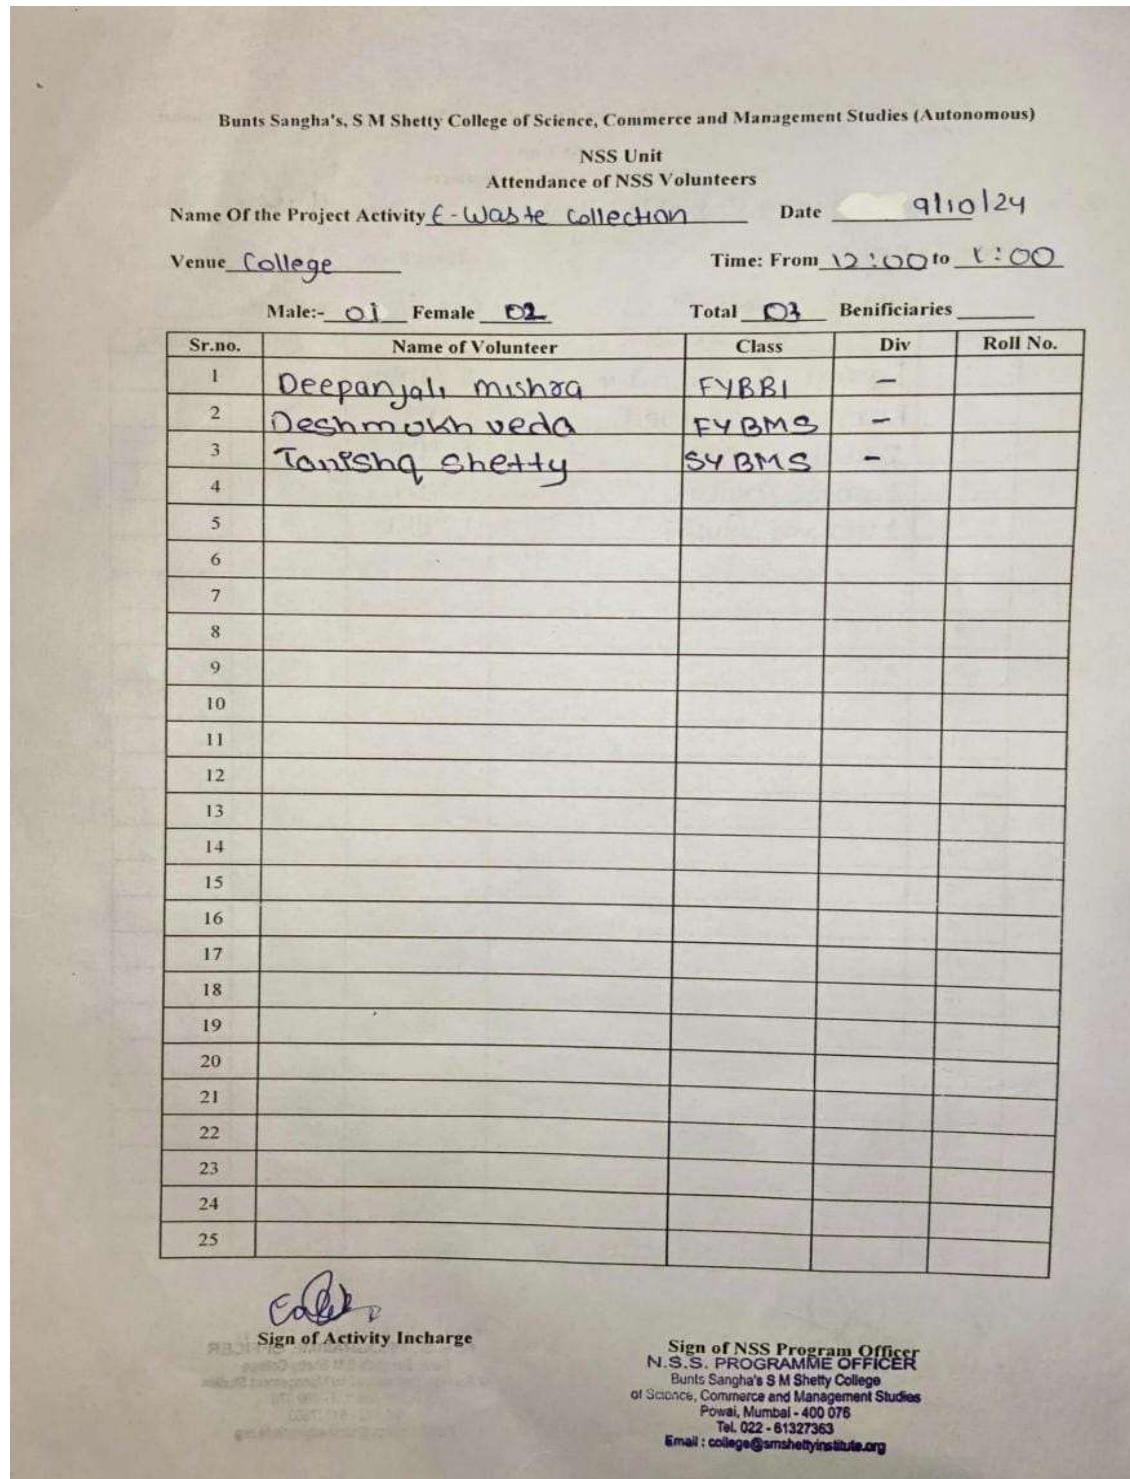 Bunts Sangha's, S M Shetty College of Science, Commerce and Management Studies (Autonomous)
NSS Unit
Attendance of NSS Volunteers
Name Of the Project Activity E-Waste Collection Date 9/10/24
Venue College Time: From 12:00 to 1:00
Male:- 01 Female 02 Total 03 Benificiaries
Sr.no. Name of Volunteer Class Div Roll No.
1 Deepanjali mishra FYBBI -
2 Deshmukh veda FYBMS -
3 Tanishq Shetty SYBMS -
4
5
6
7
8
9
10
11
12
13
14
15
16
17
18
19
20
21
22
23
24
25
Sign of Activity Incharge
Sign of NSS Program Officer
N.S.S. PROGRAMME OFFICER
Bunts Sangha's S M Shetty College
of Science, Commerce and Management Studies
Powai, Mumbai - 400 076
Tel. 022 - 61327363
Email : college@smshettyinstitute.org